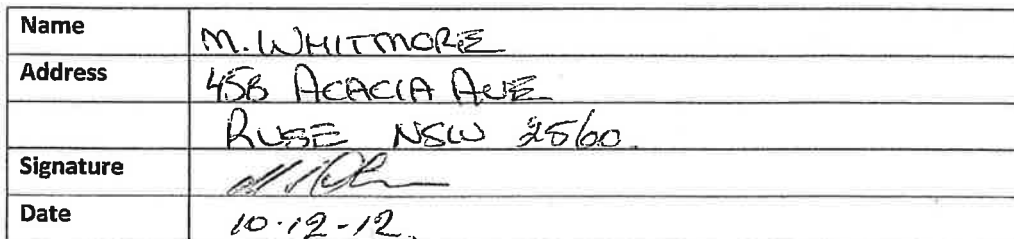 Name M. WHITMORE
Address 45B ACACIA AVE
RUSE NSW 2560.
Signature
Date 10-12-12.